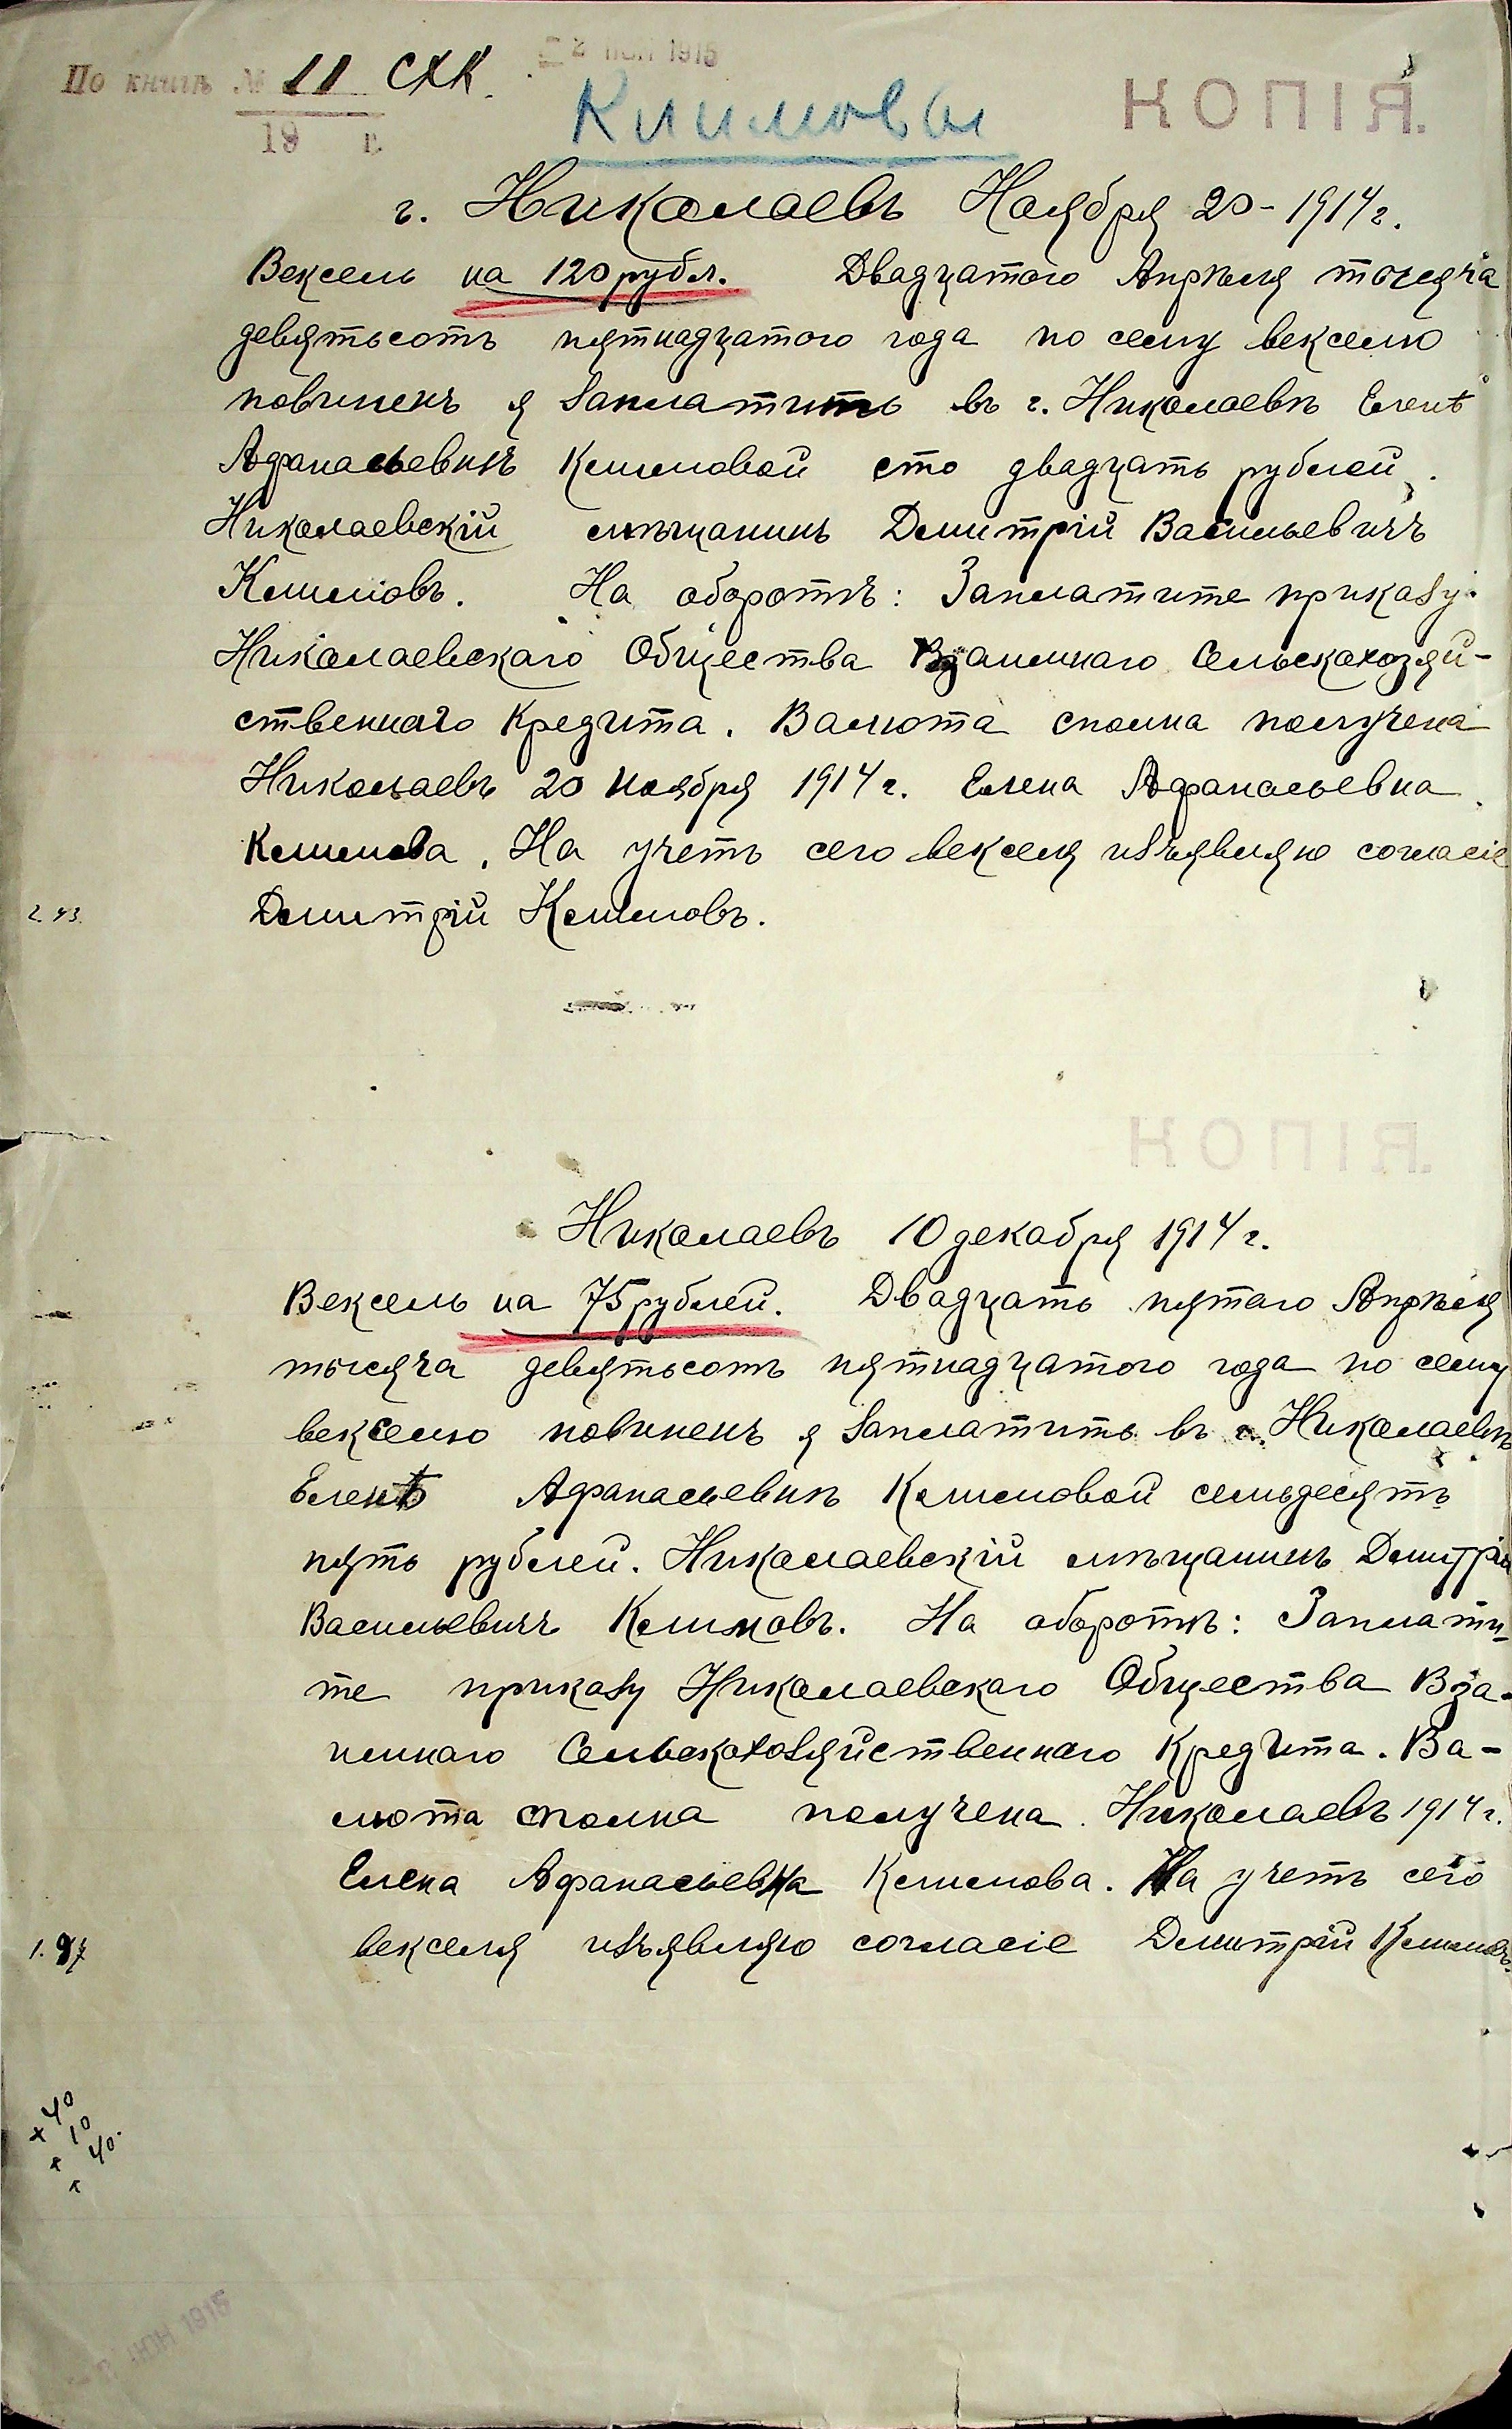 По книгѣ № 11 СХК.
2 ІЮН 1915
19 г.
Климовы
КОПІЯ.
г. Николаевъ Ноября 20 - 1914 г.
Вексель на 120 рубл. Двадцатого Апрѣля тысяча
девятьсотъ пятнадцатого года по сему векселю
повиненъ я заплатить въ г. Николаевѣ Еленѣ
Афанасьевнѣ Климовой сто двадцать рублей.
Николаевскій мѣщанинъ Димитрій Васильевичъ
Климовъ. На оборотѣ: Заплатите приказу
Николаевскаго Общества Взаимнаго Сельскахозяй-
ственнаго Кредита. Валюта сполна получена
Николаевъ 20 Ноября 1914 г. Елена Афанасьевна
Климова. На учетъ сего векселя изъявляю согласіе
2 43. Димитрій Климовъ.
КОПІЯ.
Николаевъ 10 декабря 1914 г.
Вексель на 75 рублей. Двадцать пятаго Апрѣля
тысяча девятьсотъ пятнадцатого года по сему
векселю повиненъ я заплатить въ г. Николаевѣ
Еленѣ Афанасьевнѣ Климовой семьдесятъ
пять рублей. Николаевскій мѣщанинъ Димитрій
Васильевичъ Климовъ. На оборотѣ: Заплати-
те приказу Николаевскаго Общества Вза-
имнаго Сельскахозяйственнаго Кредита. Ва-
люта сполна получена. Николаевъ 1914 г.
Елена Афанасьевна Климова. На учетъ сего
векселя изъявляю согласіе Димитрій Климовъ.
40
10
40.
ІЮН 1915